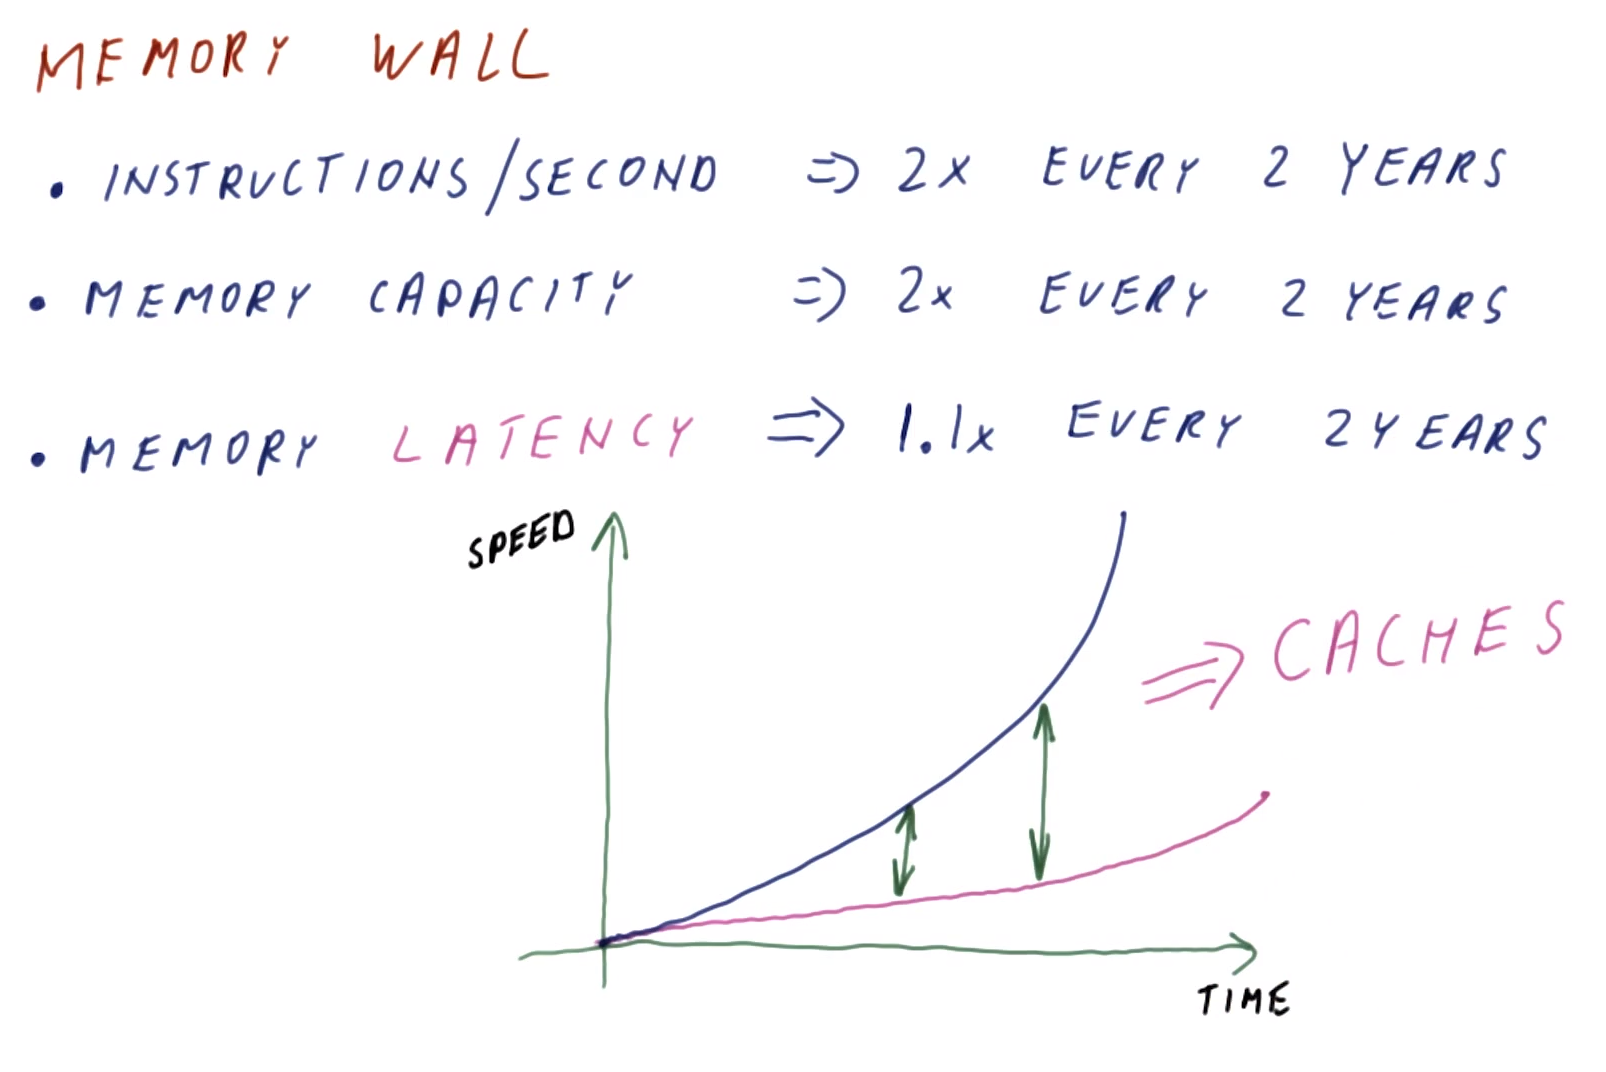 MEMORY WALL
• INSTRUCTIONS/SECOND => 2x EVERY 2 YEARS
• MEMORY CAPACITY => 2x EVERY 2 YEARS
• MEMORY LATENCY => 1.1x EVERY 2 YEARS
SPEED
=> CACHES
TIME